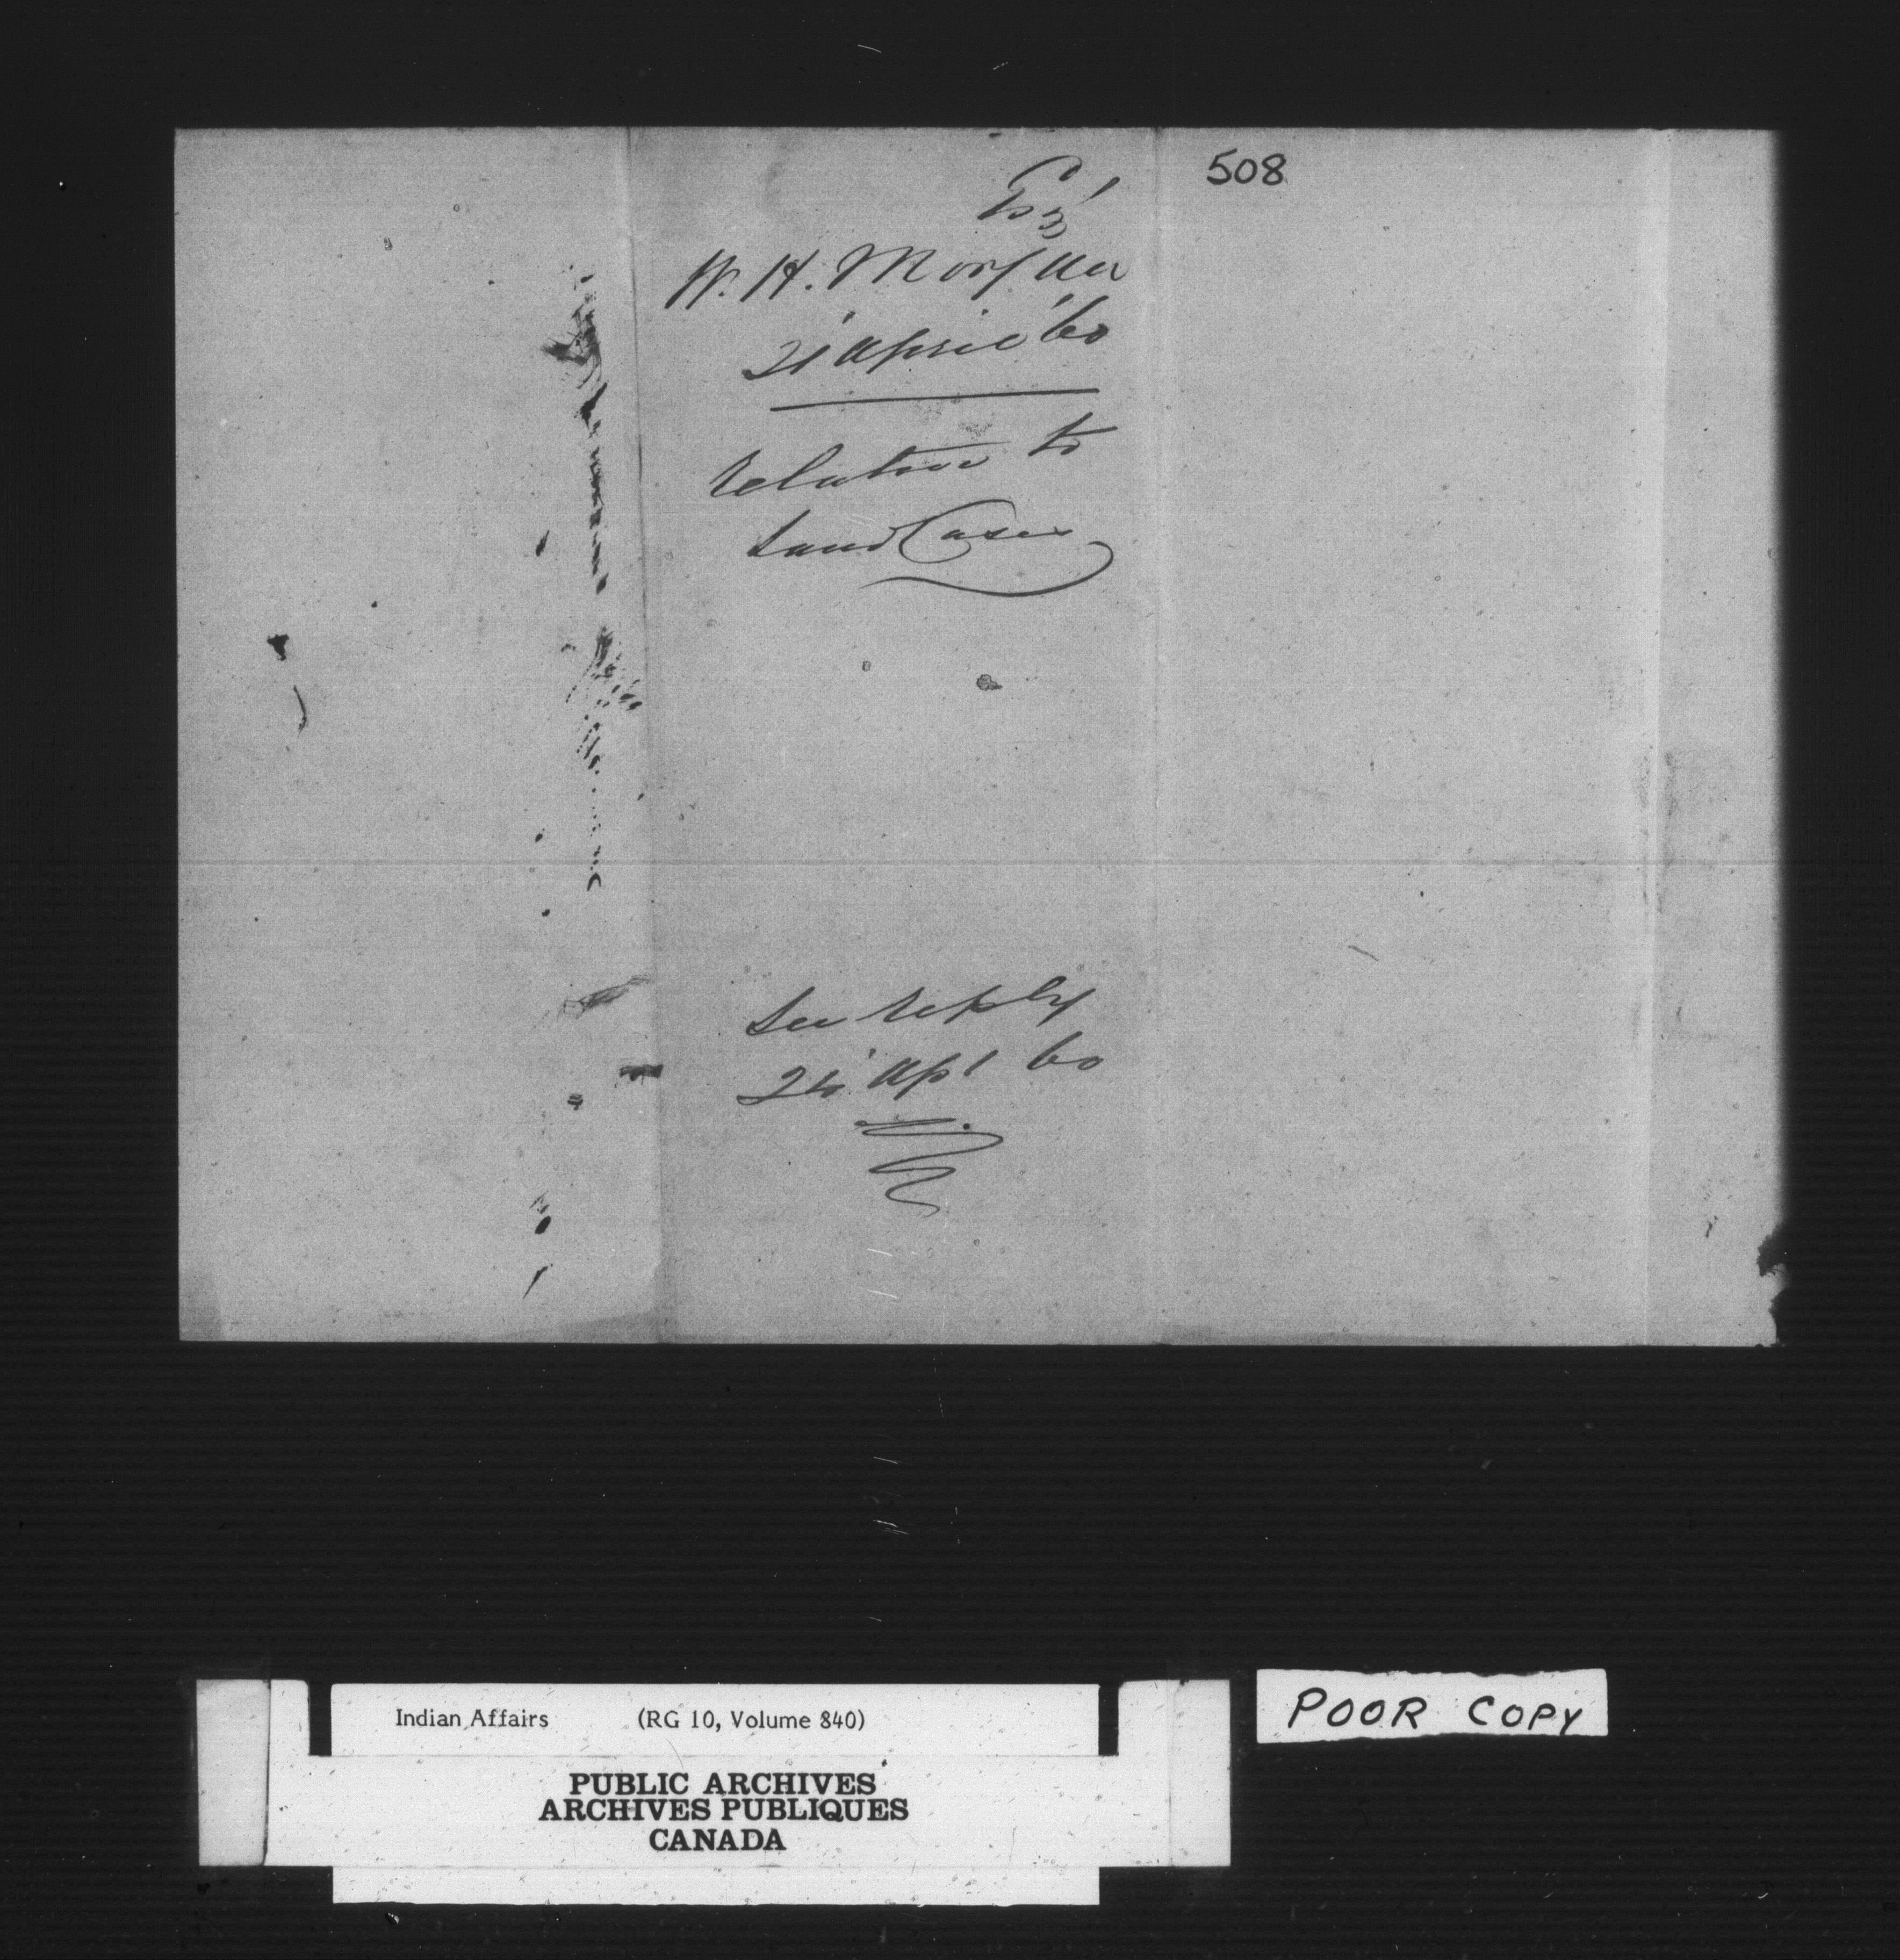 508
Esqr
W. H. Morgan
21 April '60
Relative to
Land Cases
See Reply
24 Apl 60
Indian Affairs (RG 10, Volume 840)
PUBLIC ARCHIVES
ARCHIVES PUBLIQUES
CANADA
POOR COPY